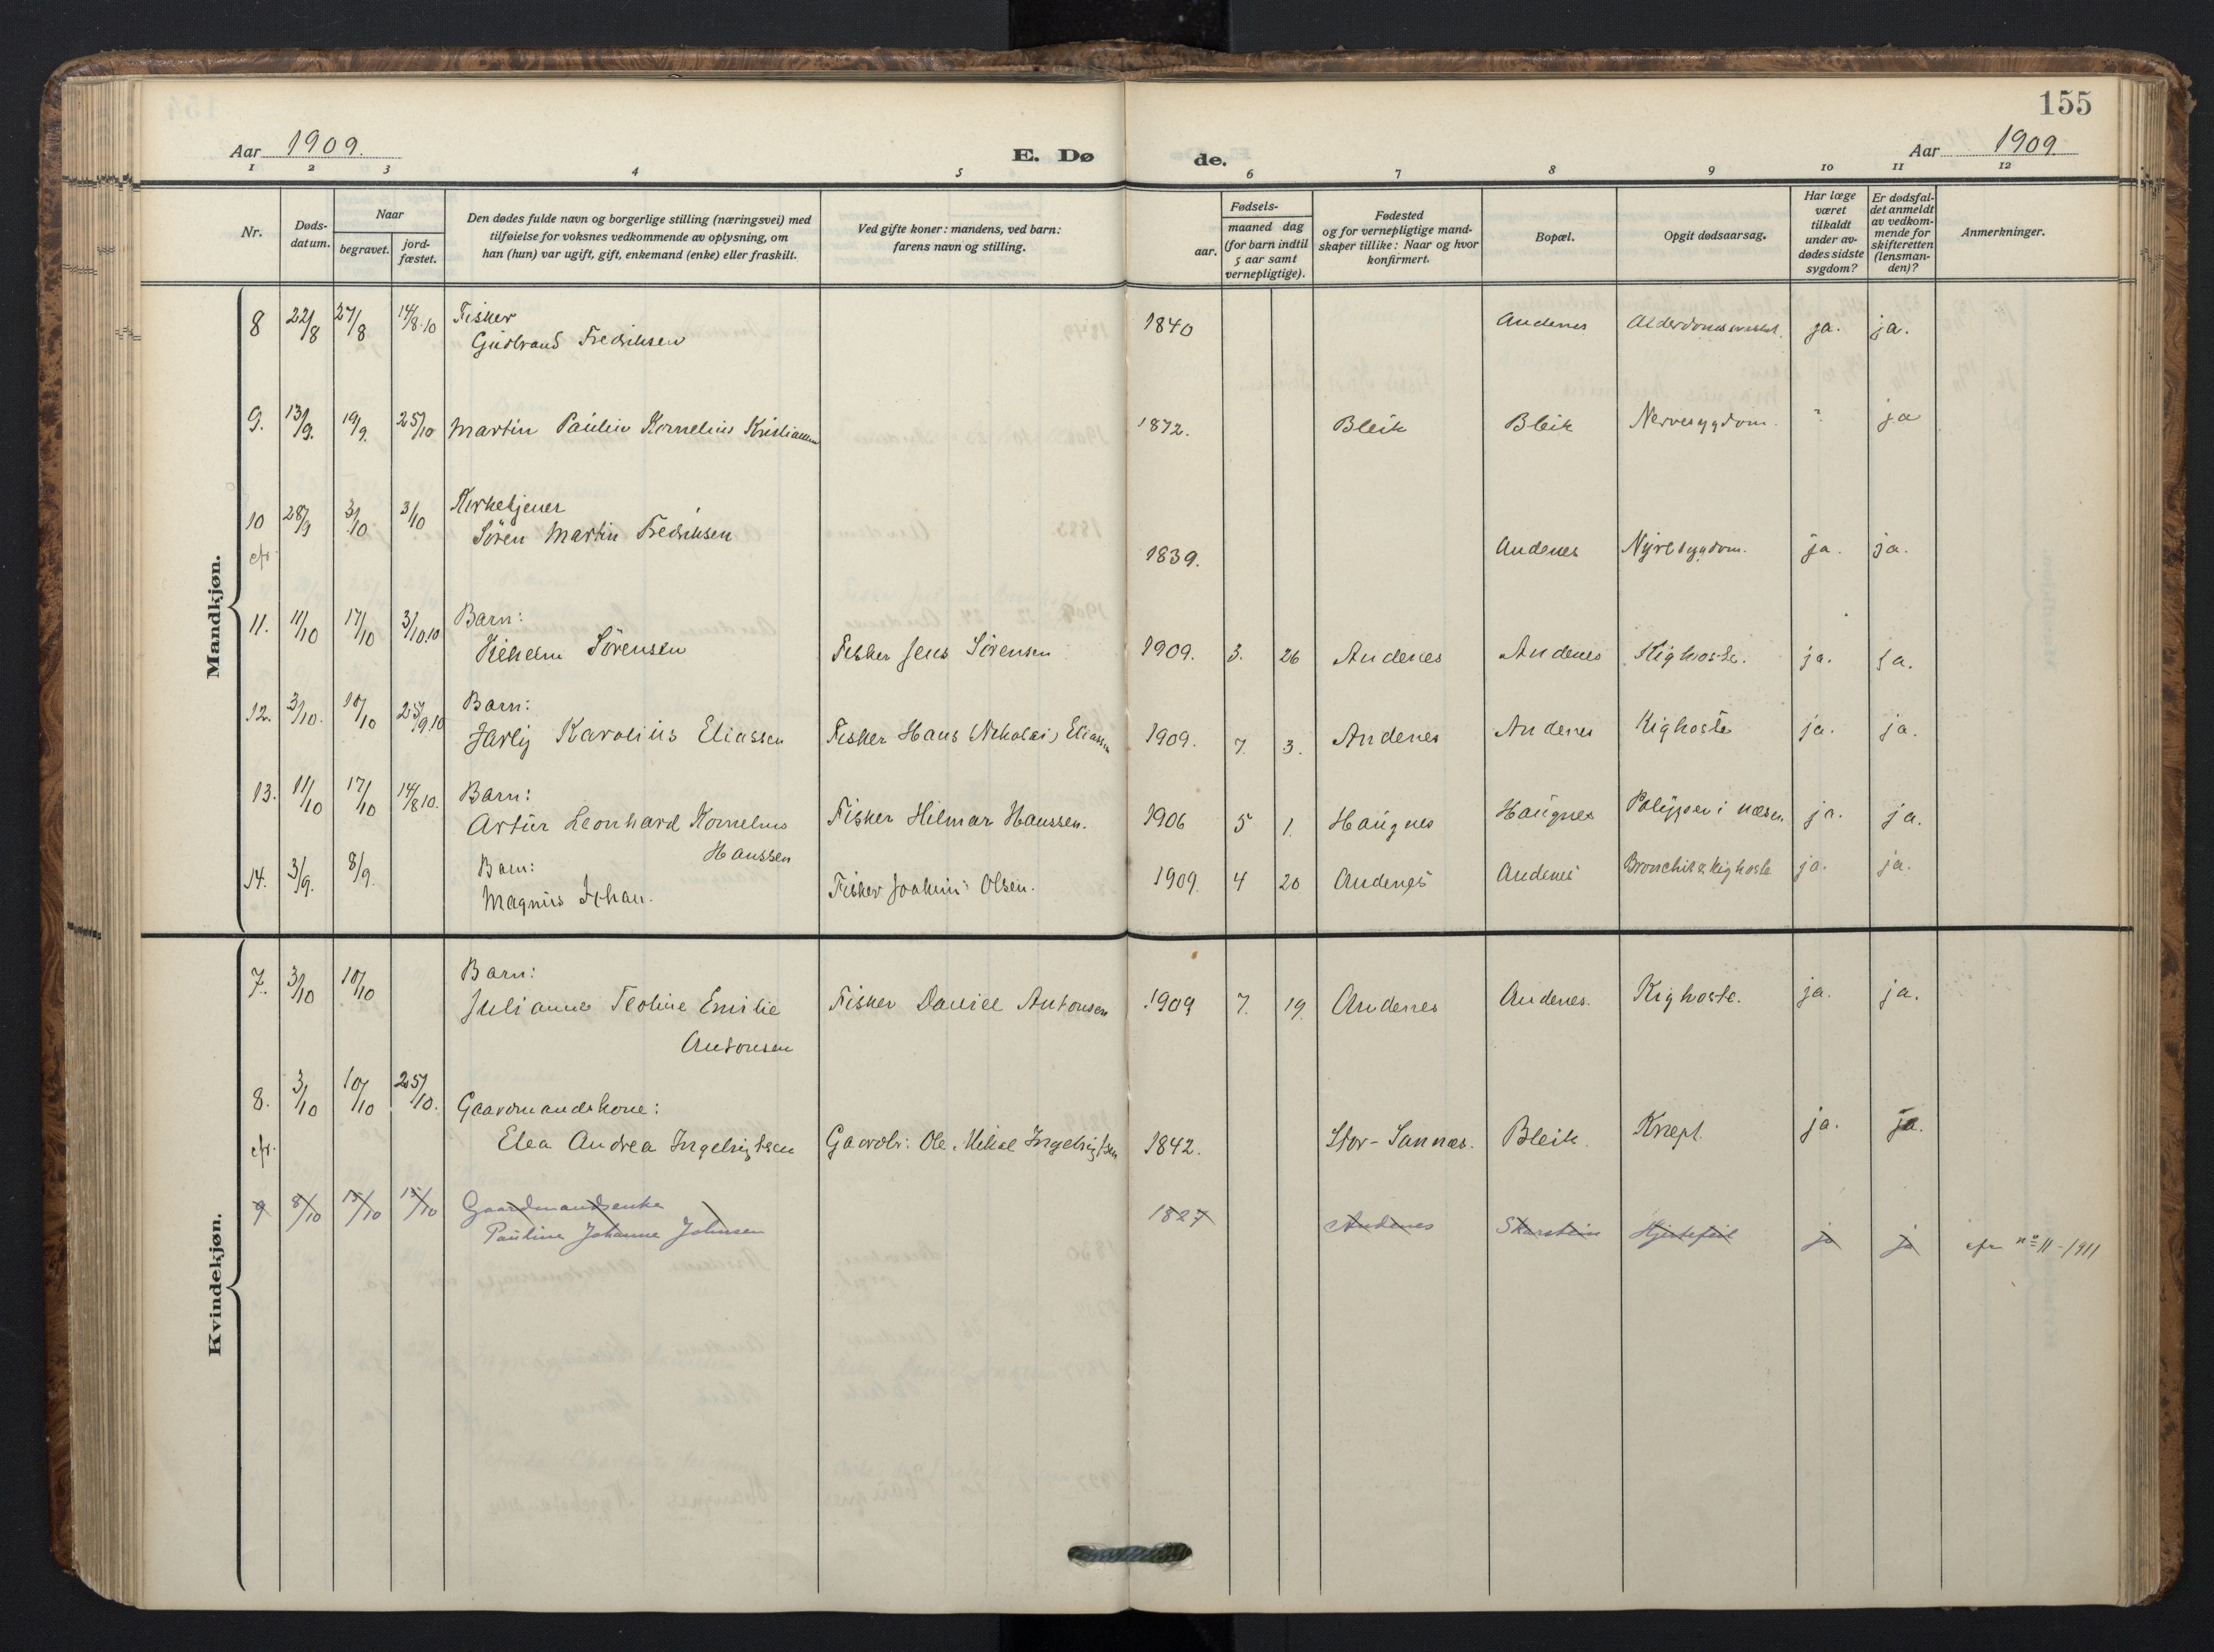 155
Aar 1909.
E. Dø
de.
Aar 1909.
1 2 3 4 5 6 7 8 9 10 11 12
Nr.
Døds-
datum.
Naar
begravet.
jord-
fæstet.
Den dødes fulde navn og borgerlige stilling (næringsvei) med
tilføielse for voksnes vedkommende av oplysning, om
han (hun) var ugift, gift, enkemand (enke) eller fraskilt.
Ved gifte koner: mandens, ved barn:
farens navn og stilling.
Fødsels-
aar.
maaned dag
(for barn indtil
5 aar samt
vernepligtige).
Fødested
og for vernepligtige mand-
skaper tillike: Naar og hvor
konfirmert.
Bopæl.
Opgit dødsaarsag.
Har læge
været
tilkaldt
under av-
dødes sidste
sygdom?
Er dødsfal-
det anmeldt
av vedkom-
mende for
skifteretten
(lensman-
den)?
Anmerkninger.
Mandkjøn.
8 22/8 27/8 14/8.10 Fisker
Gudbrand Fredriksen 1840 Andenes ja. ja.
9. 13/9. 19/9. 25/10 Martin Paulin Kornelius Kristiansen 1872. Bleik Bleik Nervesygdom. ? ja
10 28/9 3/10 3/10 Kirketjener
Sören Martin Fredriksen
cfr. 1839. Andenes Nyresygdom. ja. ja.
11. 11/10 17/10 3/10.10 Barn:
Vilhelm Sörensen Fisker Jens Sörensen 1909. 3. 26 Andenes Andenes Kighoste. ja. ja.
12. 3/10. 10/10 25/9.10 Barn:
Jarly Karolius Eliassen Fisker Hans Nikolai Eliassen 1909. 7. 3. Andenes Andenes Kighoste ja. ja.
13. 11/10 17/10 14/8 10. Barn:
Artur Leonhard Kornelius
Hanssen Fisker Hilmar Hanssen. 1906 5 1. Haugnes Haugnes Polypper i næsen ja. ja.
14. 3/9. 8/9. Barn:
Magnus Johan. Fisker Joakim Olsen. 1909. 4 20 Andenes Andenes Bronchit & kighoste ja. ja.
Kvindekjøn.
7. 3/10 10/10 Barn:
Julianne Teoline Emilie
Antonsen Fisker Daniel Antonsen 1909 7. 19. Andenes Andenes. Kighoste. ja. ja.
8. 3/10 10/10 25/10. Gaardmandskone:
cfr. Elea Andrea Ingebrigtsen Gaardbr: Ole Mikal Ingebrigtsen 1842. Stor-Sannes. Bleik. Kræft. ja. ja.
9 8/10 15/10 15/10 Gaardmandsenke
Pauline Johanne Johnsen 1827 Andenes Skarstein Hjertefeil ja ja cfr nº 11-1911